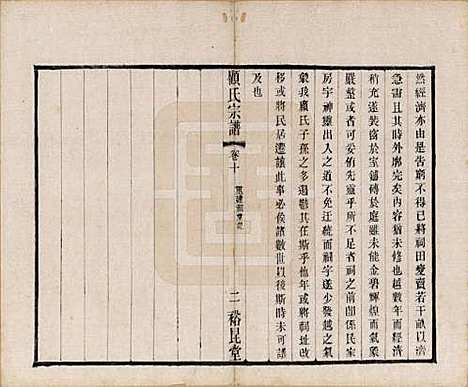 然經濟亦由是告窮不得已將祠田變賣若干畝以資
急需且其時外廓完矣內容猶未修也越數年而經濟
稍充遂裝窗於室鋪磚於庭雖未能金碧輝煌而氣象
嚴整或者其可興乎所最惜者祠之前後左右係民家
房宇神靈出入之道不免迂疏而祠宇遂少發越之氣
象我顧氏子孫之多遏鬱其在斯乎他年將祠址改
移或將民居遷讓此事必俟諸數世以後斯時未可謀
及也
顧氏宗譜
卷十
二
裕昆堂